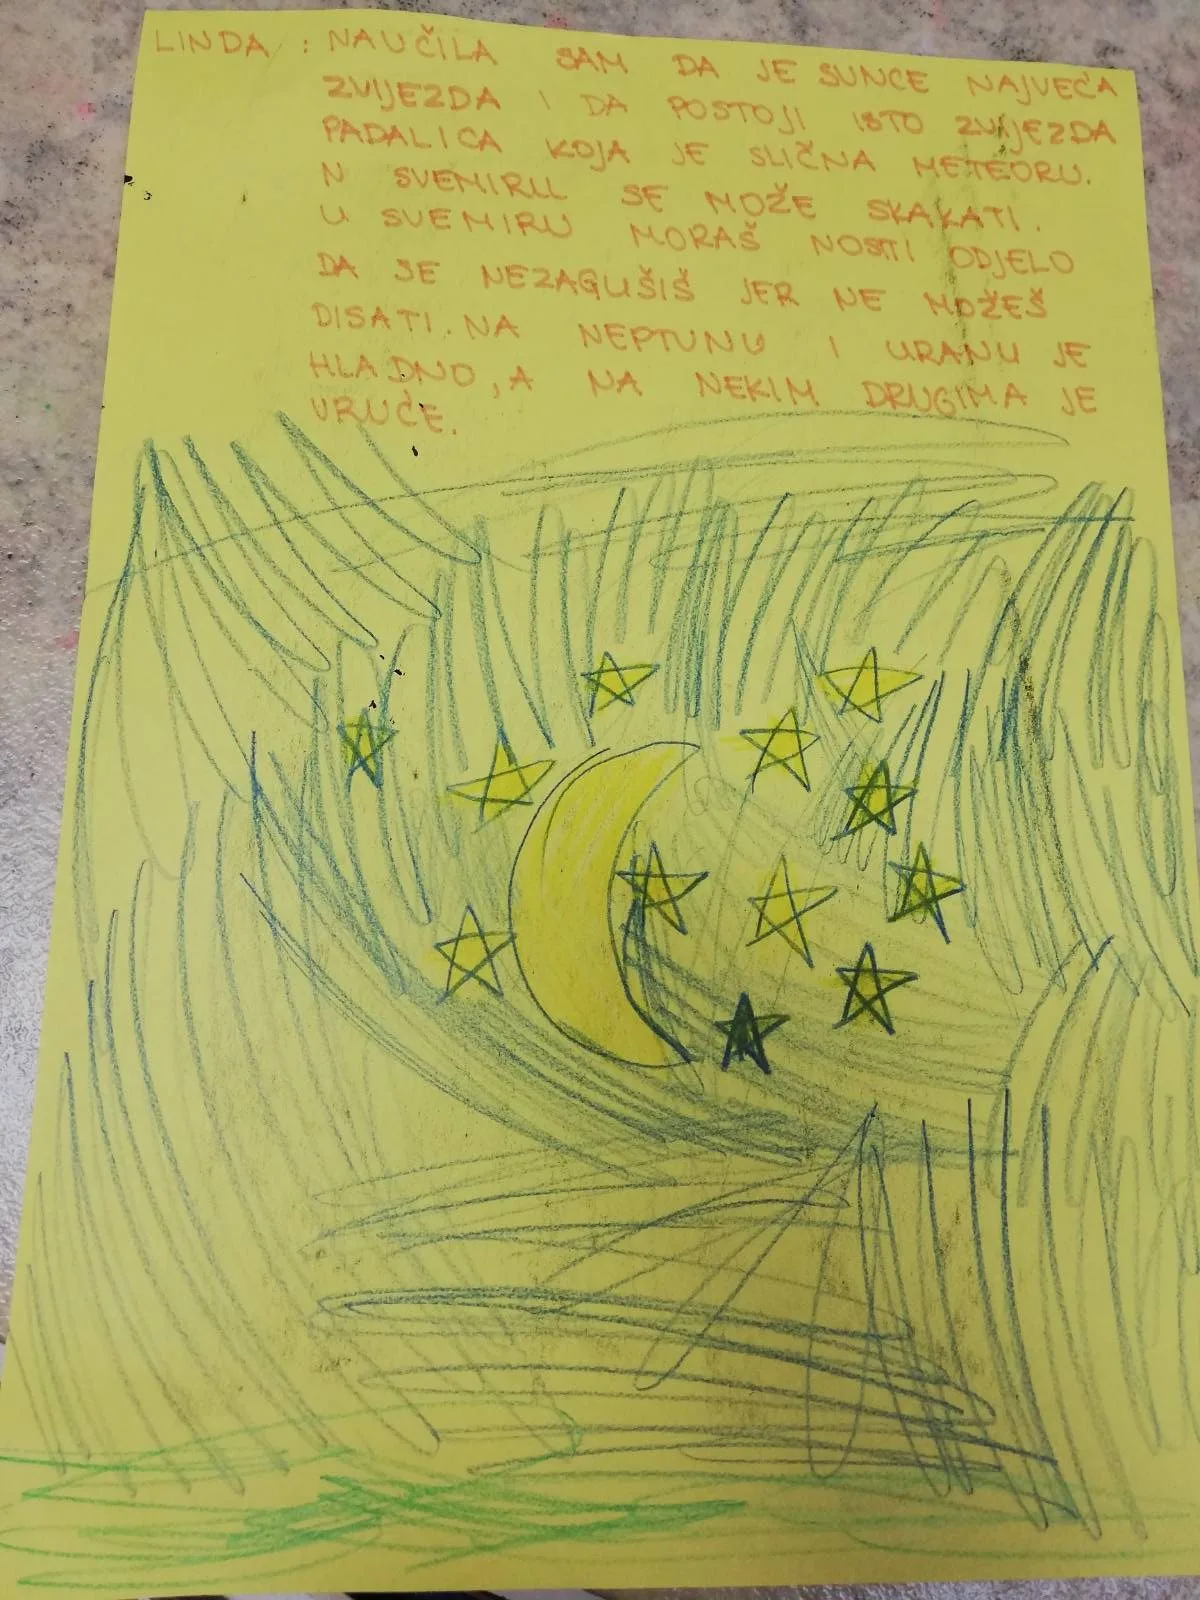 LINDA : NAUČILA SAM DA JE SUNCE NAJVEĆA
ZVIJEZDA I DA POSTOJI ISTO ZVIJEZDA
PADALICA KOJA JE SLIČNA METEORU.
N SVEMIRU SE MOŽE SKAKATI.
U SVEMIRU MORAŠ NOSTI ODJELO
DA SE NEZAGUŠIŠ JER NE MOŽEŠ
DISATI. NA NEPTUNU I URANU JE
HLADNO, A NA NEKIM DRUGIMA JE
VRUĆE.